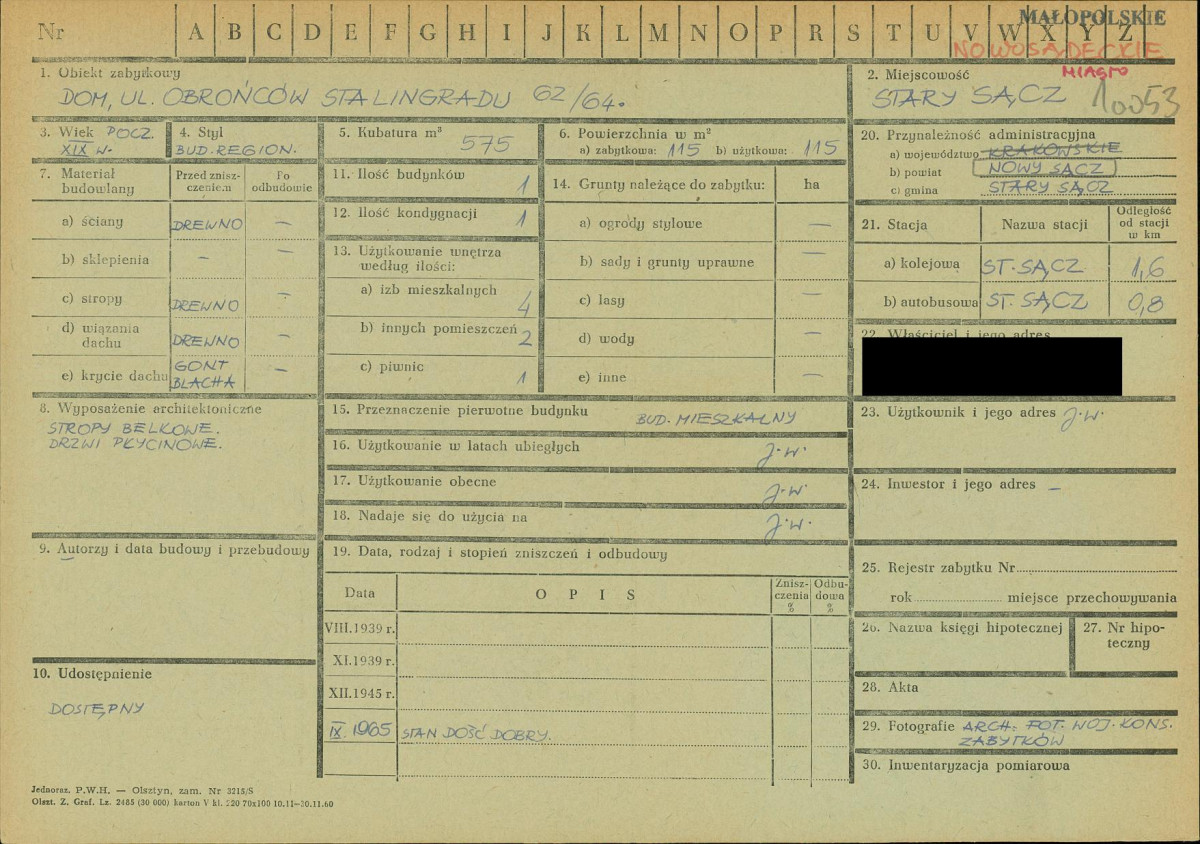 Nr A B C D E F G H I J K L M N O P R S T U V W X Y Z
MAŁOPOLSKIE
NOWOSĄDECKIE
MIASTO
10053
1. Obiekt zabytkowy
DOM, UL. OBROŃCÓW STALINGRADU 62/64.
2. Miejscowość
STARY SĄCZ
3. Wiek POCZ.
XIX W.
4. Styl
BUD. REGION.
5. Kubatura m³
575
6. Powierzchnia w m²
a) zabytkowa: 115 b) użytkowa: 115
7. Materiał budowlany
Przed zniszczeniem
Po odbudowie
a) ściany DREWNO —
b) sklepienia — —
c) stropy DREWNO —
d) wiązania dachu DREWNO —
e) krycie dachu GONT BLACHA —
8. Wyposażenie architektoniczne
STROPY BELKOWE.
DRZWI PŁYCINOWE.
9. Autorzy i data budowy i przebudowy
—
10. Udostępnienie
DOSTĘPNY
11. Ilość budynków 1
12. Ilość kondygnacji 1
13. Użytkowanie wnętrza
według ilości:
a) izb mieszkalnych 4
b) innych pomieszczeń 2
c) piwnic 1
14. Grunty należące do zabytku: ha
a) ogrody stylowe —
b) sady i grunty uprawne —
c) lasy —
d) wody —
e) inne —
15. Przeznaczenie pierwotne budynku BUD. MIESZKALNY
16. Użytkowanie w latach ubiegłych J.W.
17. Użytkowanie obecne J.W.
18. Nadaje się do użycia na J.W.
19. Data, rodzaj i stopień zniszczeń i odbudowy
Data OPIS Zniszczenia % Odbudowa %
VIII.1939 r.
XI.1939 r.
XII.1945 r.
IX. 1965 STAN DOŚĆ DOBRY.
20. Przynależność administracyjna
a) województwo KRAKOWSKIE
b) powiat NOWY SĄCZ
c) gmina STARY SĄCZ
21. Stacja Nazwa stacji Odległość od stacji w km
a) kolejowa ST. SĄCZ 1,6
b) autobusowa ST. SĄCZ 0,8
22. Właściciel i jego adres
23. Użytkownik i jego adres J.W.
24. Inwestor i jego adres —
25. Rejestr zabytku Nr
rok miejsce przechowywania
26. Nazwa księgi hipotecznej
27. Nr hipoteczny
28. Akta
29. Fotografie ARCH. FOT. WOJ. KONS.
ZABYTKÓW
30. Inwentaryzacja pomiarowa
Jednoraz. P.W.H. — Olsztyn, zam. Nr 3215/S
Olszt. Z. Graf. Lz. 2485 (30 000) karton V kl. 220 70x100 10.11—30.11.60